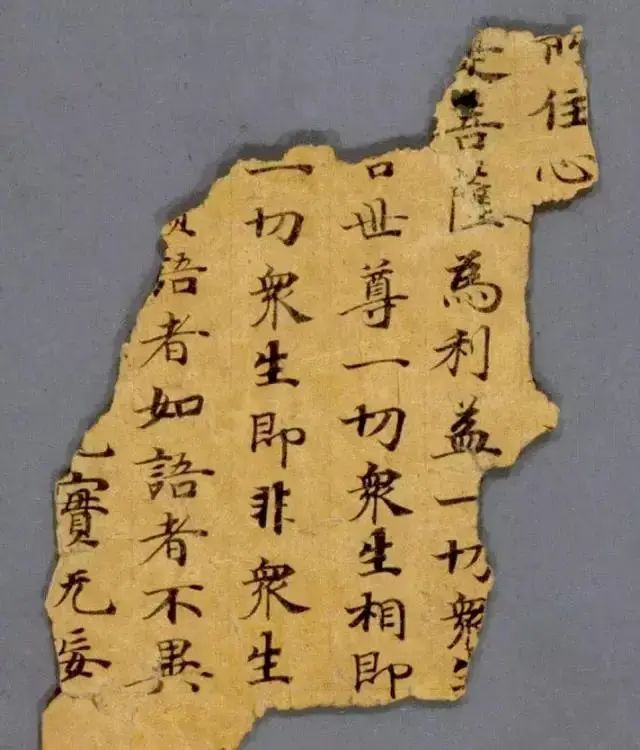 住心
菩薩為利益一切衆生
世尊一切衆生相即
一切衆生即非衆生
語者如語者不異
實无妄